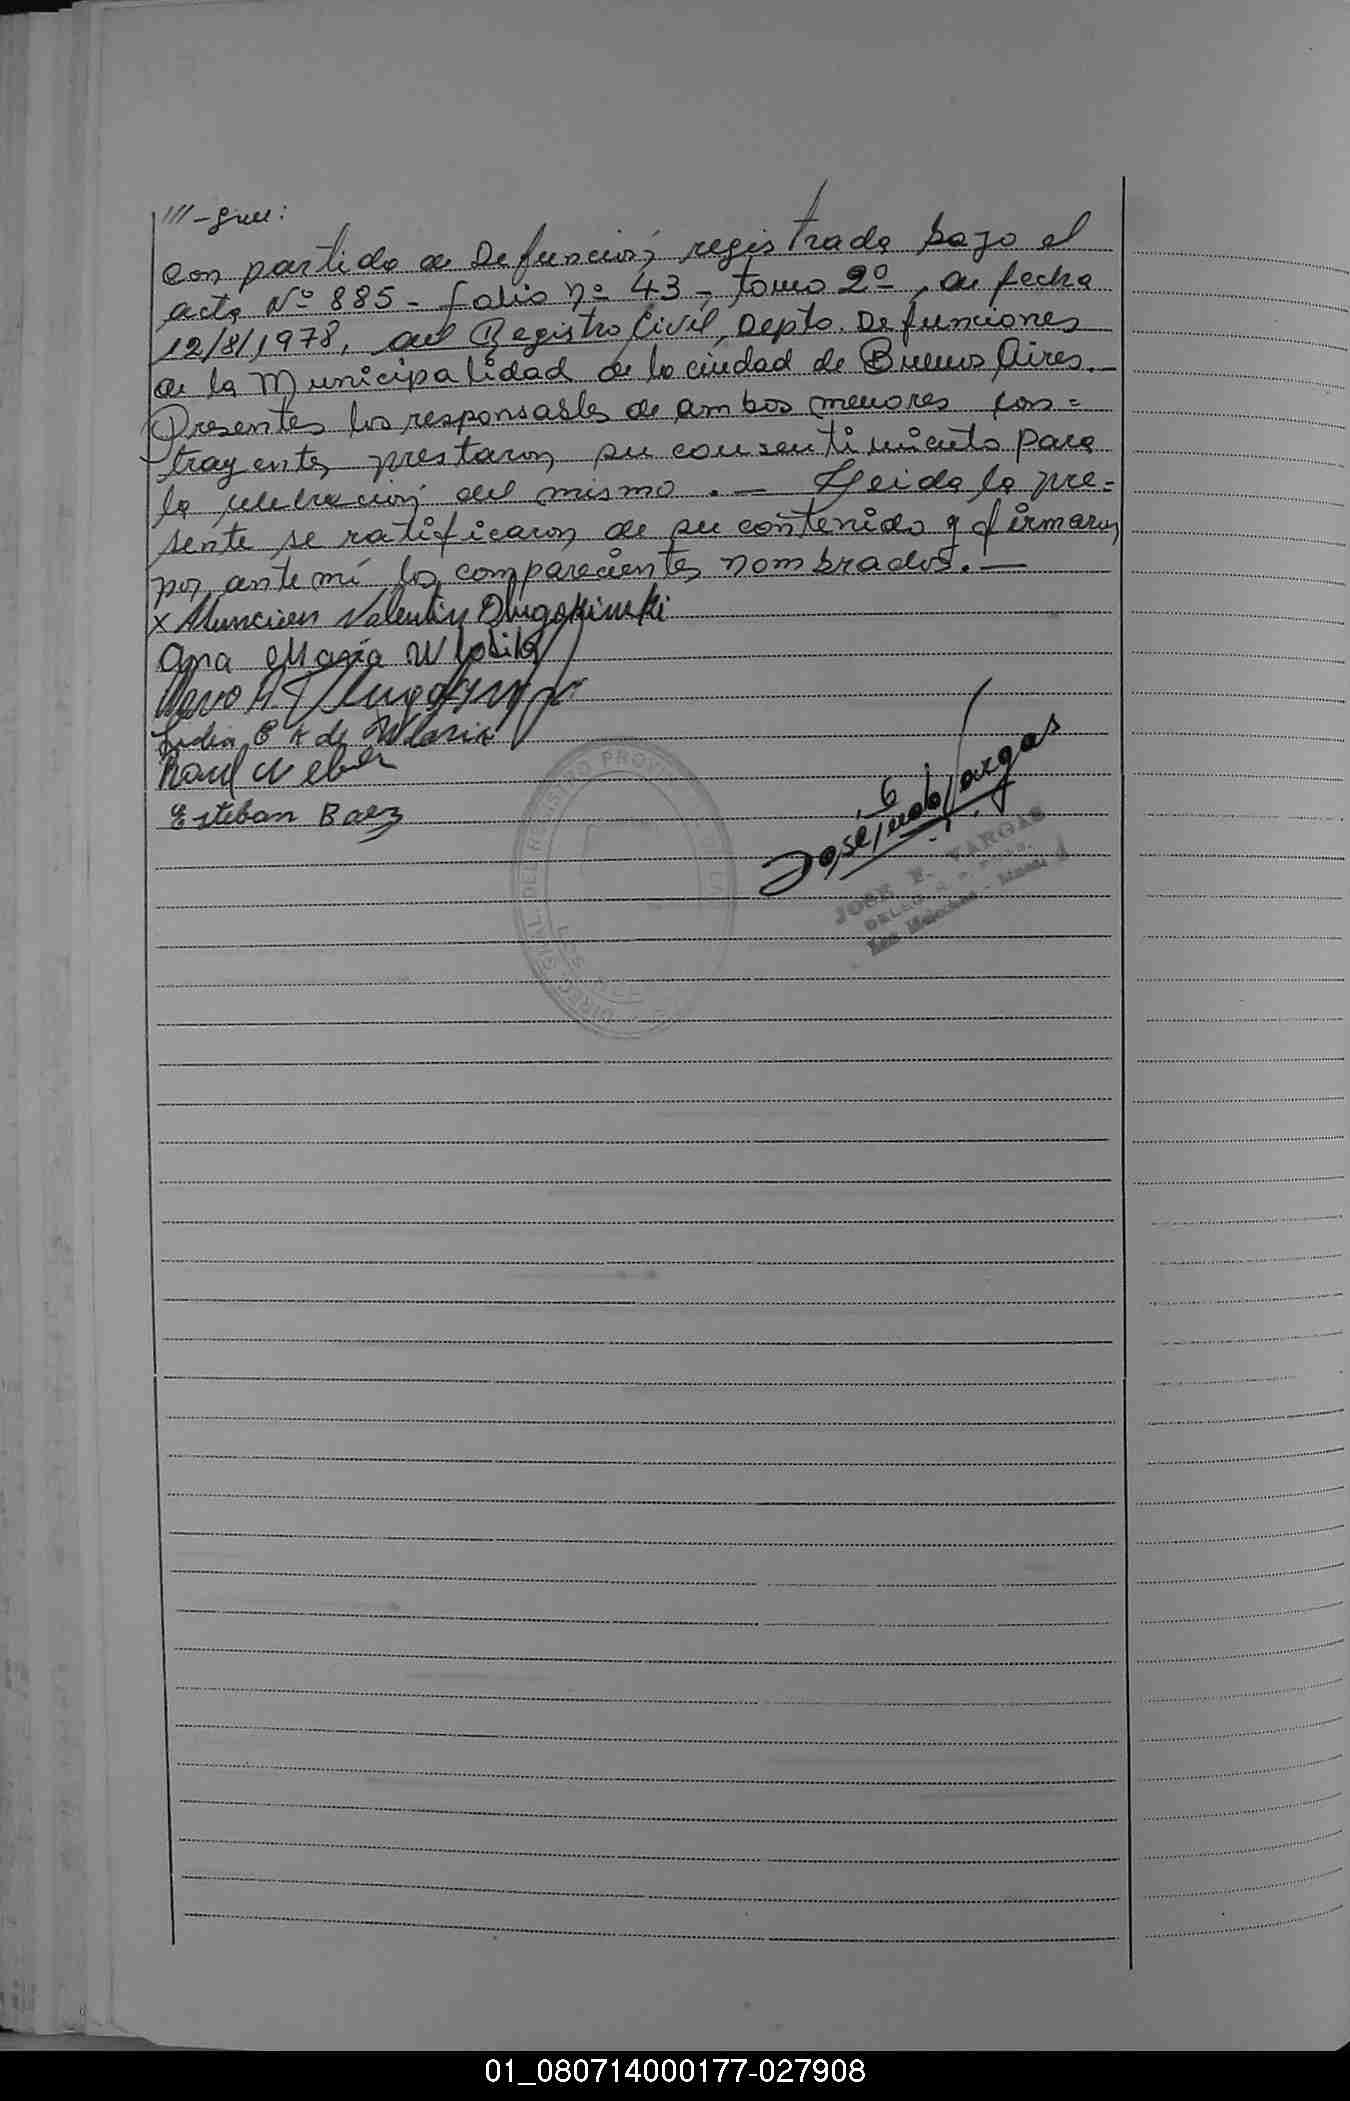 ///-
con partida de Defunción, registrada bajo el
acta Nº 885 - folio nº 43 - tomo 2º, de fecha
12/8/1978, del Registro Civil, Depto. Defunciones
de la Municipalidad de la ciudad de Buenos Aires.-
Presentes los responsables de ambos menores con=
trayentes, prestaron su consentimiento para
la celebración del mismo. - Leida la pre=
sente se ratificaron de su contenido y firmaron
por ante mí los comparecientes nombrados. -
x Valentin Dlugokinski
Ana Maria Wlosik
Lidia E K de
Raul Weber
Esteban Baez
José Vargas
JOSE F. VARGAS
DIREC. GRAL. DEL REGISTRO PROV
01_080714000177-027908